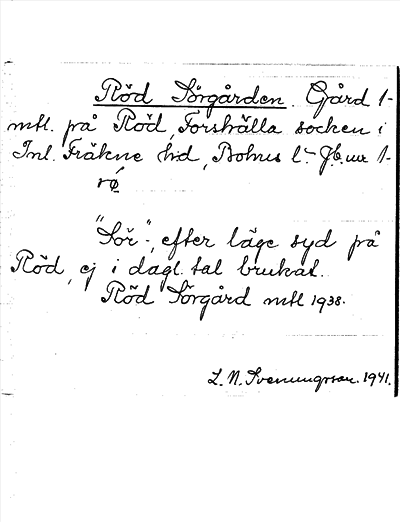 Röd Sörgården. Gård 1-
mtl. på Röd, Forshälla socken i
Inl. Fräkne hd, Bohus l. - Jb. nr 1.
rø
"Sör"-, efter läge syd på
Röd, ej i dagl. tal brukat.
Röd Sörgård mtl 1938.
L. N. Svenungsson. 1941.